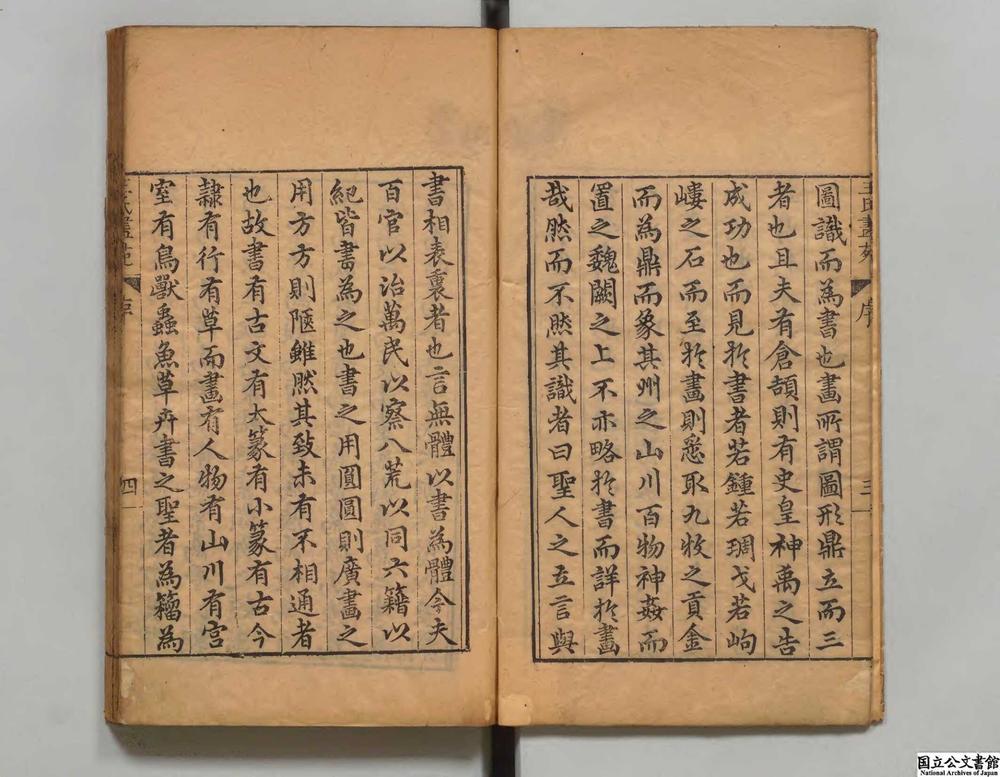 圖識而為書也畫所謂圖形鼎立而三
者也且夫有倉頡則有史皇神禹之告
成功也而見於書者若鍾若琱戈若岣
嶁之石而至於畫則悉取九牧之貢金
而為鼎而象其州之山川百物神姦而
置之魏闕之上不亦略於書而詳於畫
哉然而不然其識者曰聖人之立言與
書相表裏者也言無體以書為體今夫
百官以治萬民以察八荒以同六籍以
紀皆書為之也書之用圓圓則廣畫之
用方方則陿雖然其致未有不相通者
也故書有古文有大篆有小篆有古今
隸有行有草而畫有人物有山川有宮
室有鳥獸蟲魚草卉書之聖者為籀為
王氏畫苑
序
三
王氏畫苑
序
四
国立公文書館
National Archives of Japan